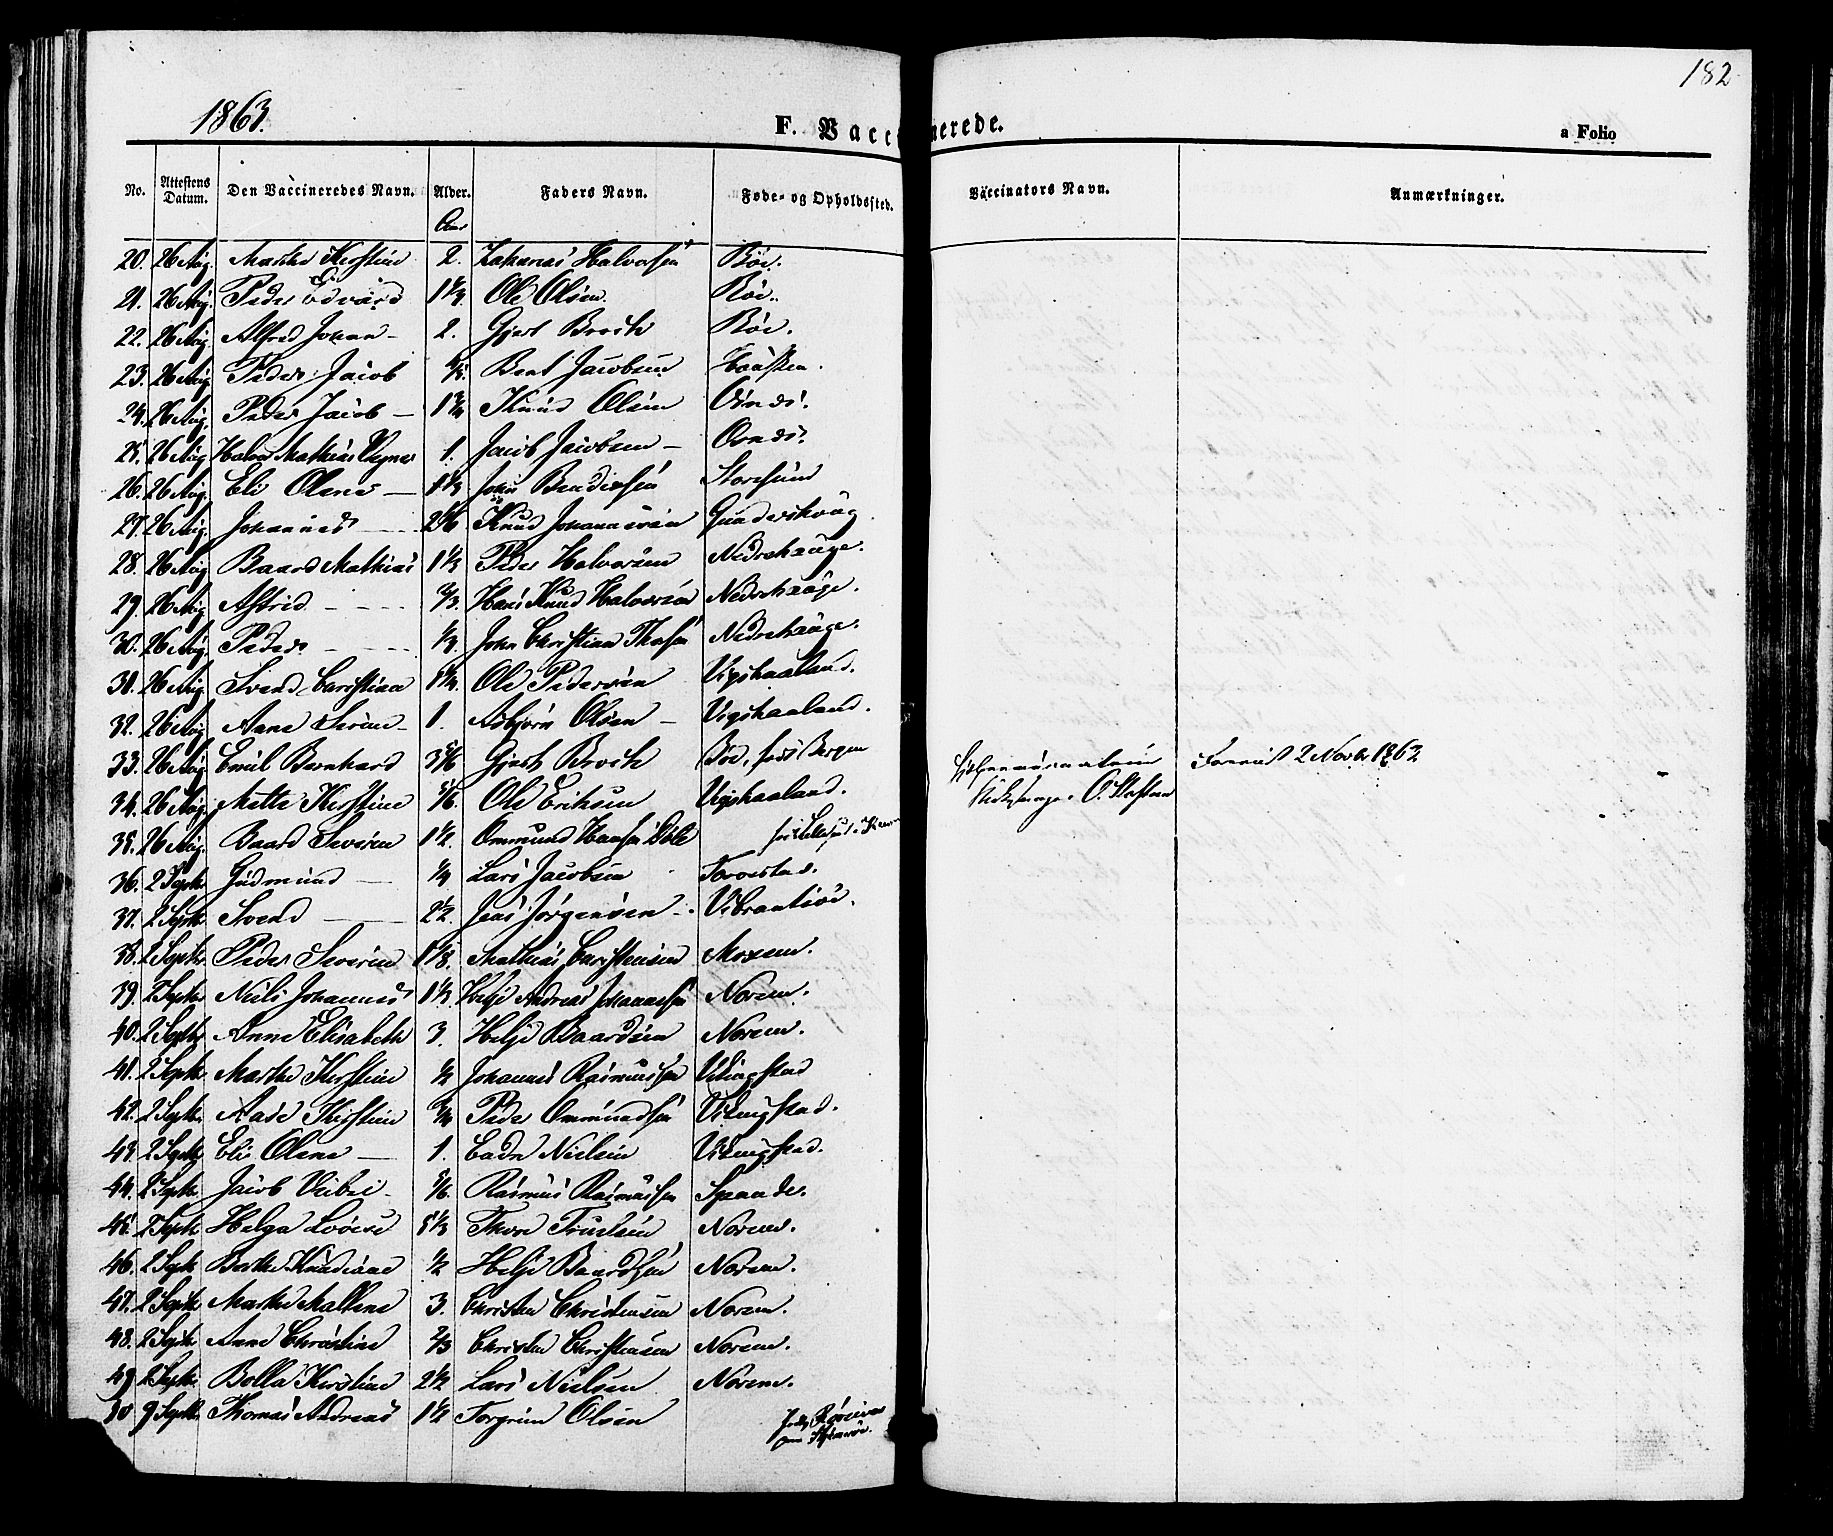 182
1863.
F. Vaccinerede.
a Folio
No. Attestens Datum. Den Vaccineredes Navn. Alder. Faders Navn. Føde- og Opholdssted. Vaccinators Navn. Anmærkninger.
Aar
20. 26 Aug. Marthe Kirstine 2. Halvorsen Böe.
21. 26 Aug. Peder Edvard 1 1/3 Ole Olsen Böe.
22. 26 Aug. Alfred Johan - 2. Gjert Brock Böe.
23. 26 Aug. Peder Jacob Bent Jacobsen
24. 26 Aug. Peder Jacob - 1 3/4 Knud Olsen Osnes.
25. 26 Aug. Mathias 1. Jacob Jacobsen - Osnes.
26. 26 Aug. Eli Olene - 1 1/3 John Storesund
27. 26 Aug. Johannes - 2 5/6 Knud Johannesen Gunderskvag
28. 26 Aug. Baard Mathias 1 1/3 Peder Halvorsen Nedrehauge.
29. 26 Aug. Astrid - - - 2/3 Hans Knud Halvorsen Nedrehauge.
30. 26 Aug. Peder - - - 1/3 John Christian Nedrehauge.
31. 26 Aug. Svend Christian 1 1/4. Ole Pedersen Vigshaaland.
32. 26 Aug. Anne Serine - 1. Asbjørn Olsen - Vigshaaland.
33. 26 Aug. Emil Bernhard 3 5/6 Gjert Brock Böe, Bergen 2 Novbr 1862
34. 26 Aug. Mette Kirstine 5/6 Ole Eriksen Vigshaaland.
35. 26 Aug. Baard Severin 1 1/2. Ommund Hansen
36. 2 Septbr Gudmund - 1/4 Lars Jacobsen Torvestad.
37. 2 Septbr Svend - 2 1/2. Jens Jørgensen - Vibrandsöe.
38. 2 Septbr Peder Severin Mathias Christensen
39. 2 Septbr Niels Johannes 1 1/3. Helje Andreas Johannessen Norem.
40. 2 Septbr Anne Elisabeth 3. Helje Baardsen Norem.
41. 2 Septbr Marthe Kirstine 1/2 Johannes Rasmussen Vikingstad
42. 2 Septbr Aase Kirstine 3/4 Peder Ommundsen Vikingstad.
43. 2 Septbr Eli Olene - 1. Nielsen Vikingstad.
44. 2 Septbr Jacob 5/6 Rasmus Rasmussen Spande.
45. 2 Septbr Helga Lovise 5 1/3 Thore Truelsen Norem.
46. 2 Septbr Berthe Knudiane 1/2 Helje Baardsen Norem.
47. 2 Septbr Marthe Mallene 3. Christen Christensen Norem.
48. 2 Septbr Anne Christine 2/3 Christen Christensen Norem.
49 2 Septbr Bolla Kirstine 2 1/2 Lars Nielsen Norem.
50 9 Septbr Thomas Andreas 1 1/2 Torgrim Olsen